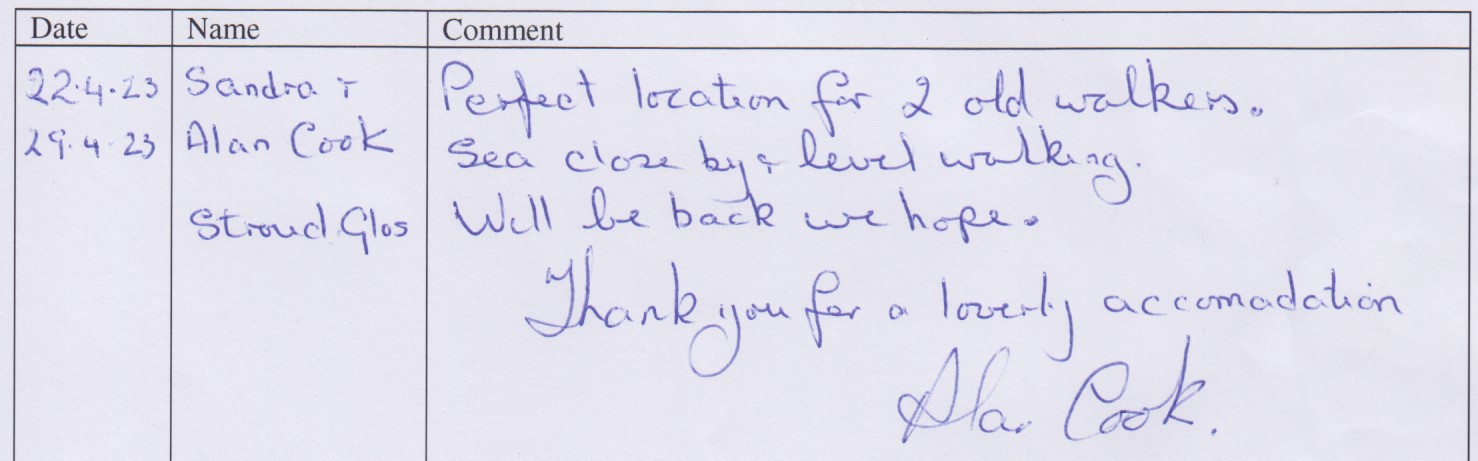 Date Name Comment
22.4.23 Sandra + Perfect location for 2 old walkers.
29.4.23 Alan Cook Sea close by & level walking.
Stroud Glos Will be back we hope.
Thank you for a loverly accomadation
Alan Cook.